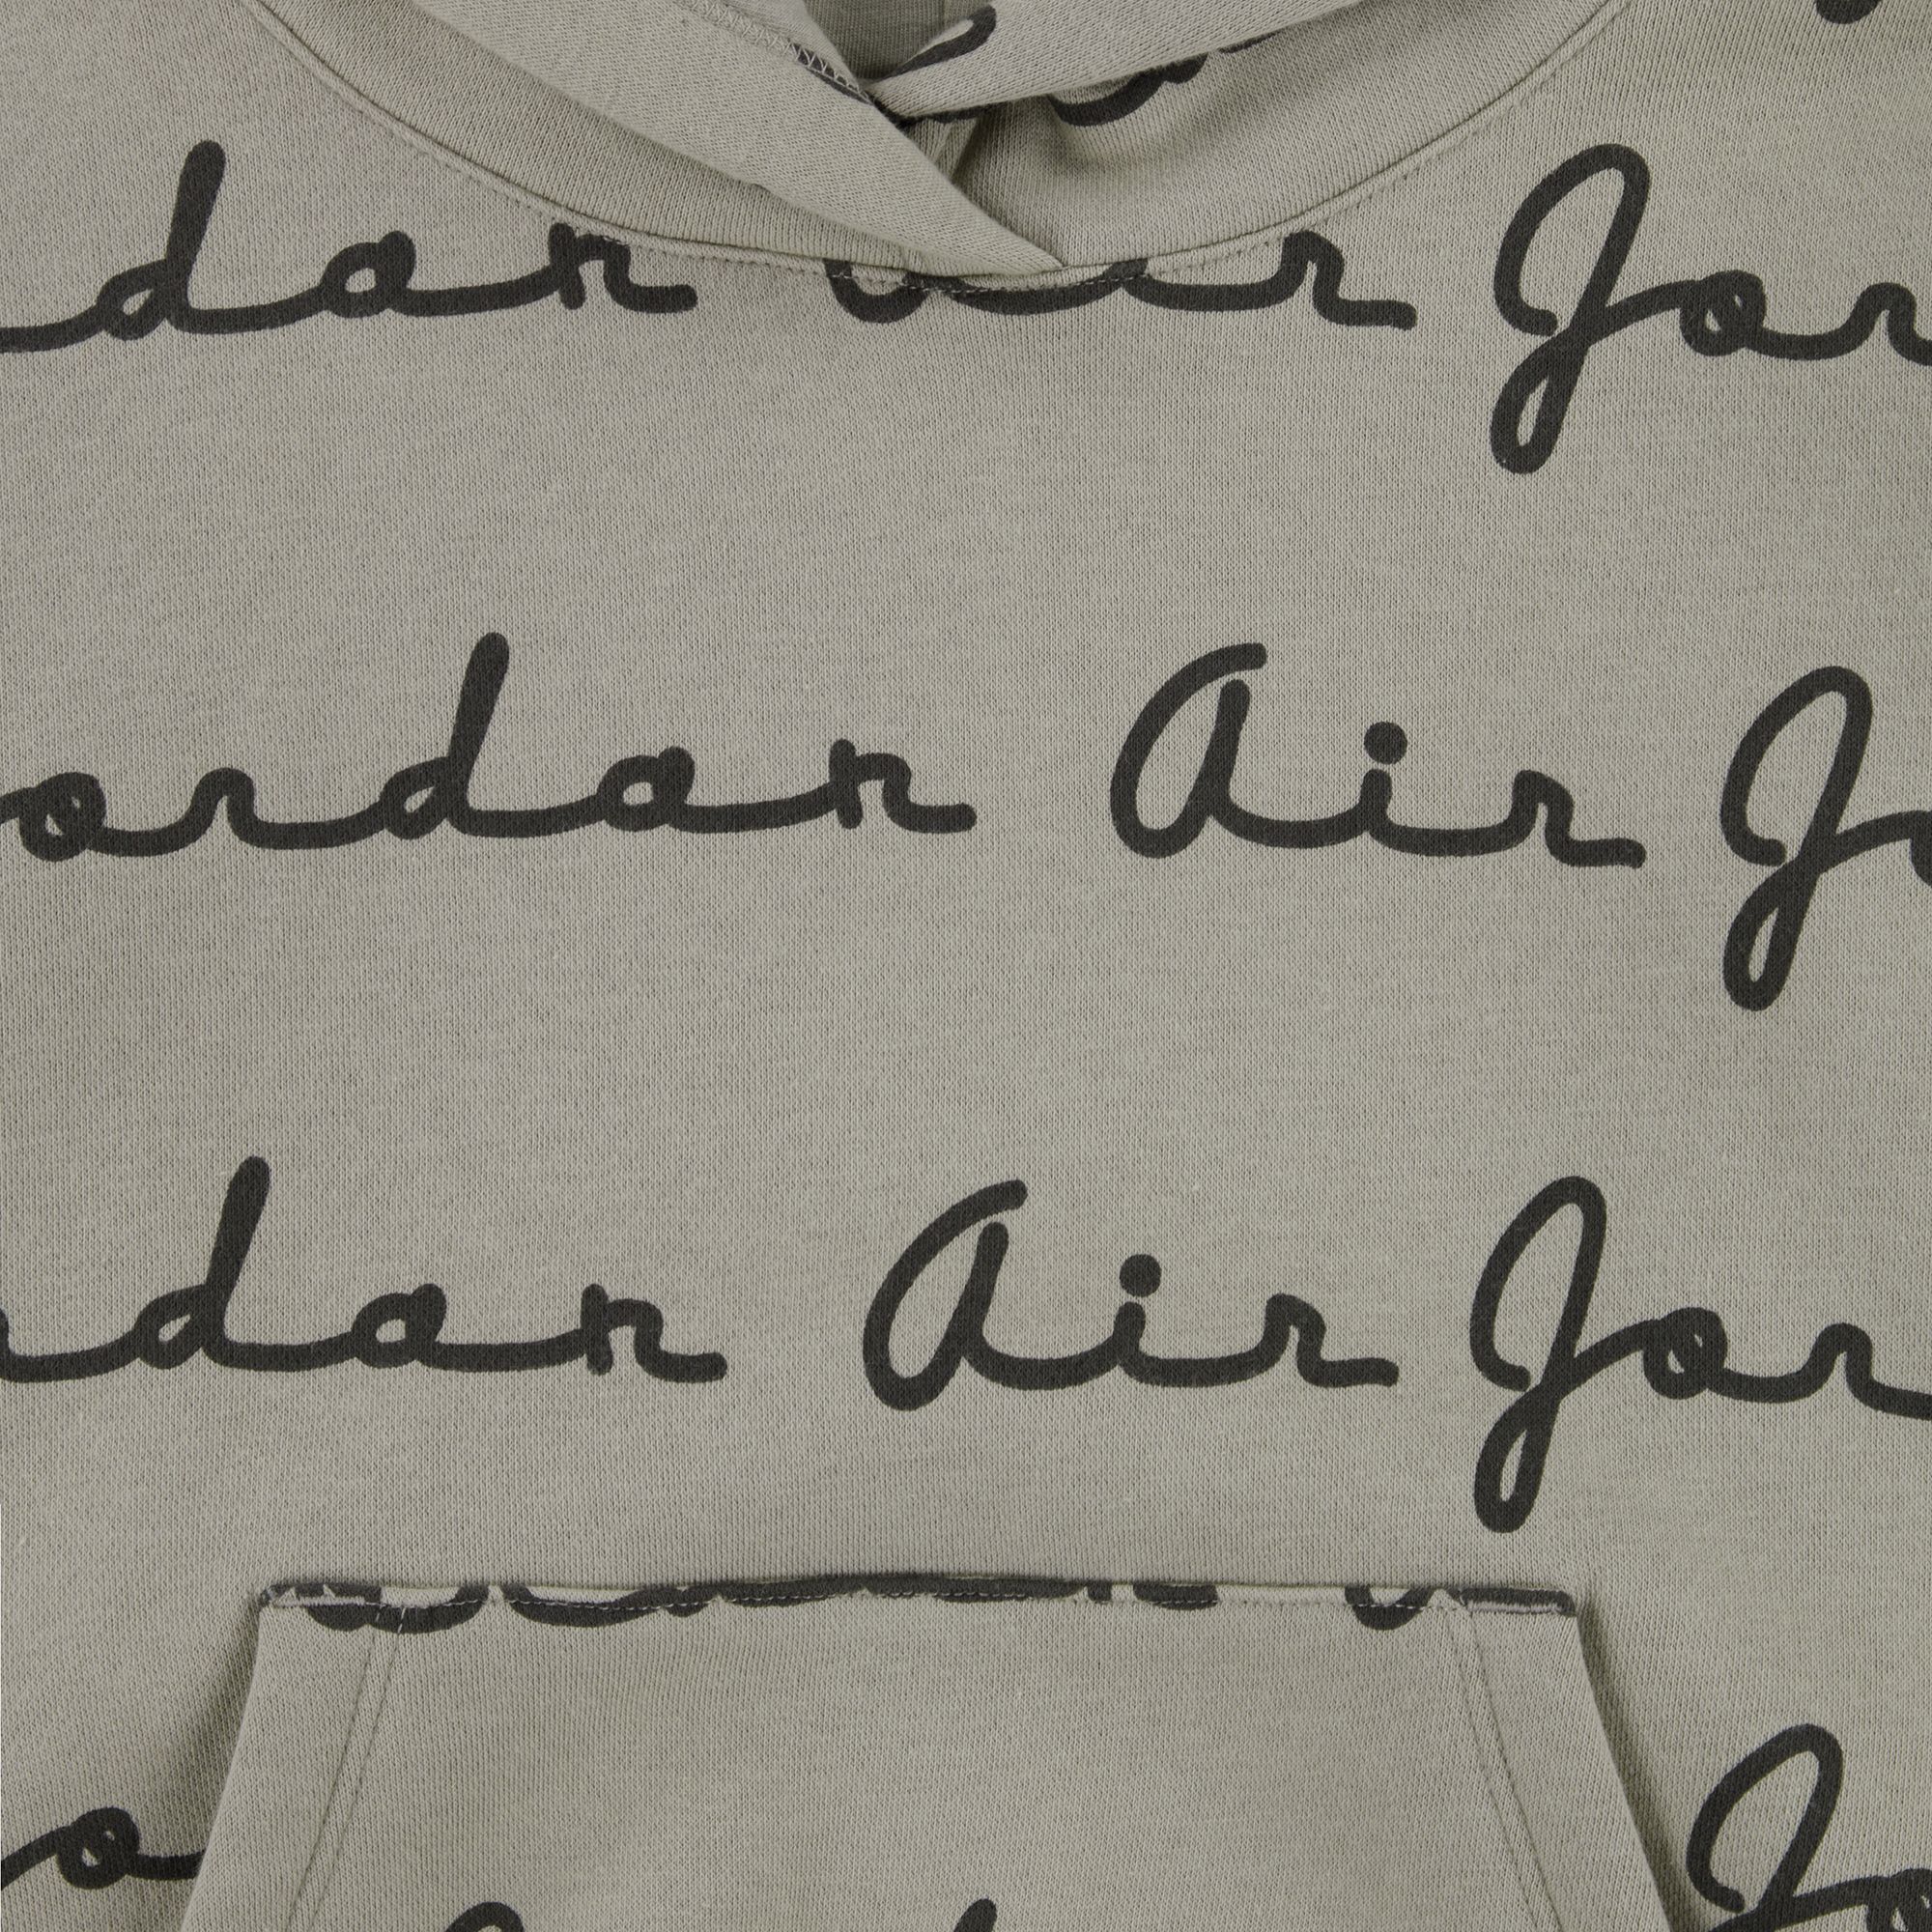 dan Air Jor
ordan Air Jo
dan Air Jor
o Jo